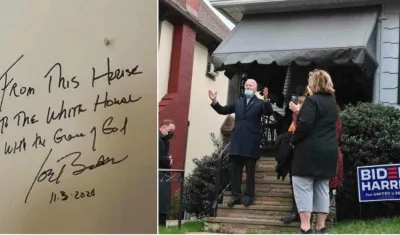 From This House
To The White House
with the Grace of God
Joe Biden
11.3.2020
BIDEN
HARRIS